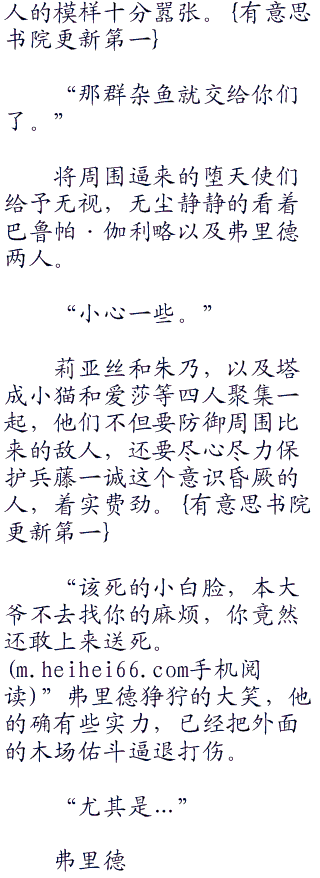 人的模样十分嚣张。{有意思
书院更新第一}
“那群杂鱼就交给你们
了。”
将周围逼来的堕天使们
给予无视，无尘静静的看着
巴鲁帕·伽利略以及弗里德
两人。
“小心一些。”
莉亚丝和朱乃，以及塔
成小猫和爱莎等四人聚集一
起，他们不但要防御周围比
来的敌人，还要尽心尽力保
护兵藤一诚这个意识昏厥的
人，着实费劲。{有意思书院
更新第一}
“该死的小白脸，本大
爷不去找你的麻烦，你竟然
还敢上来送死。
(m.heihei66.com手机阅
读)”弗里德狰狞的大笑，他
的确有些实力，已经把外面
的木场佑斗逼退打伤。
“尤其是…”
弗里德